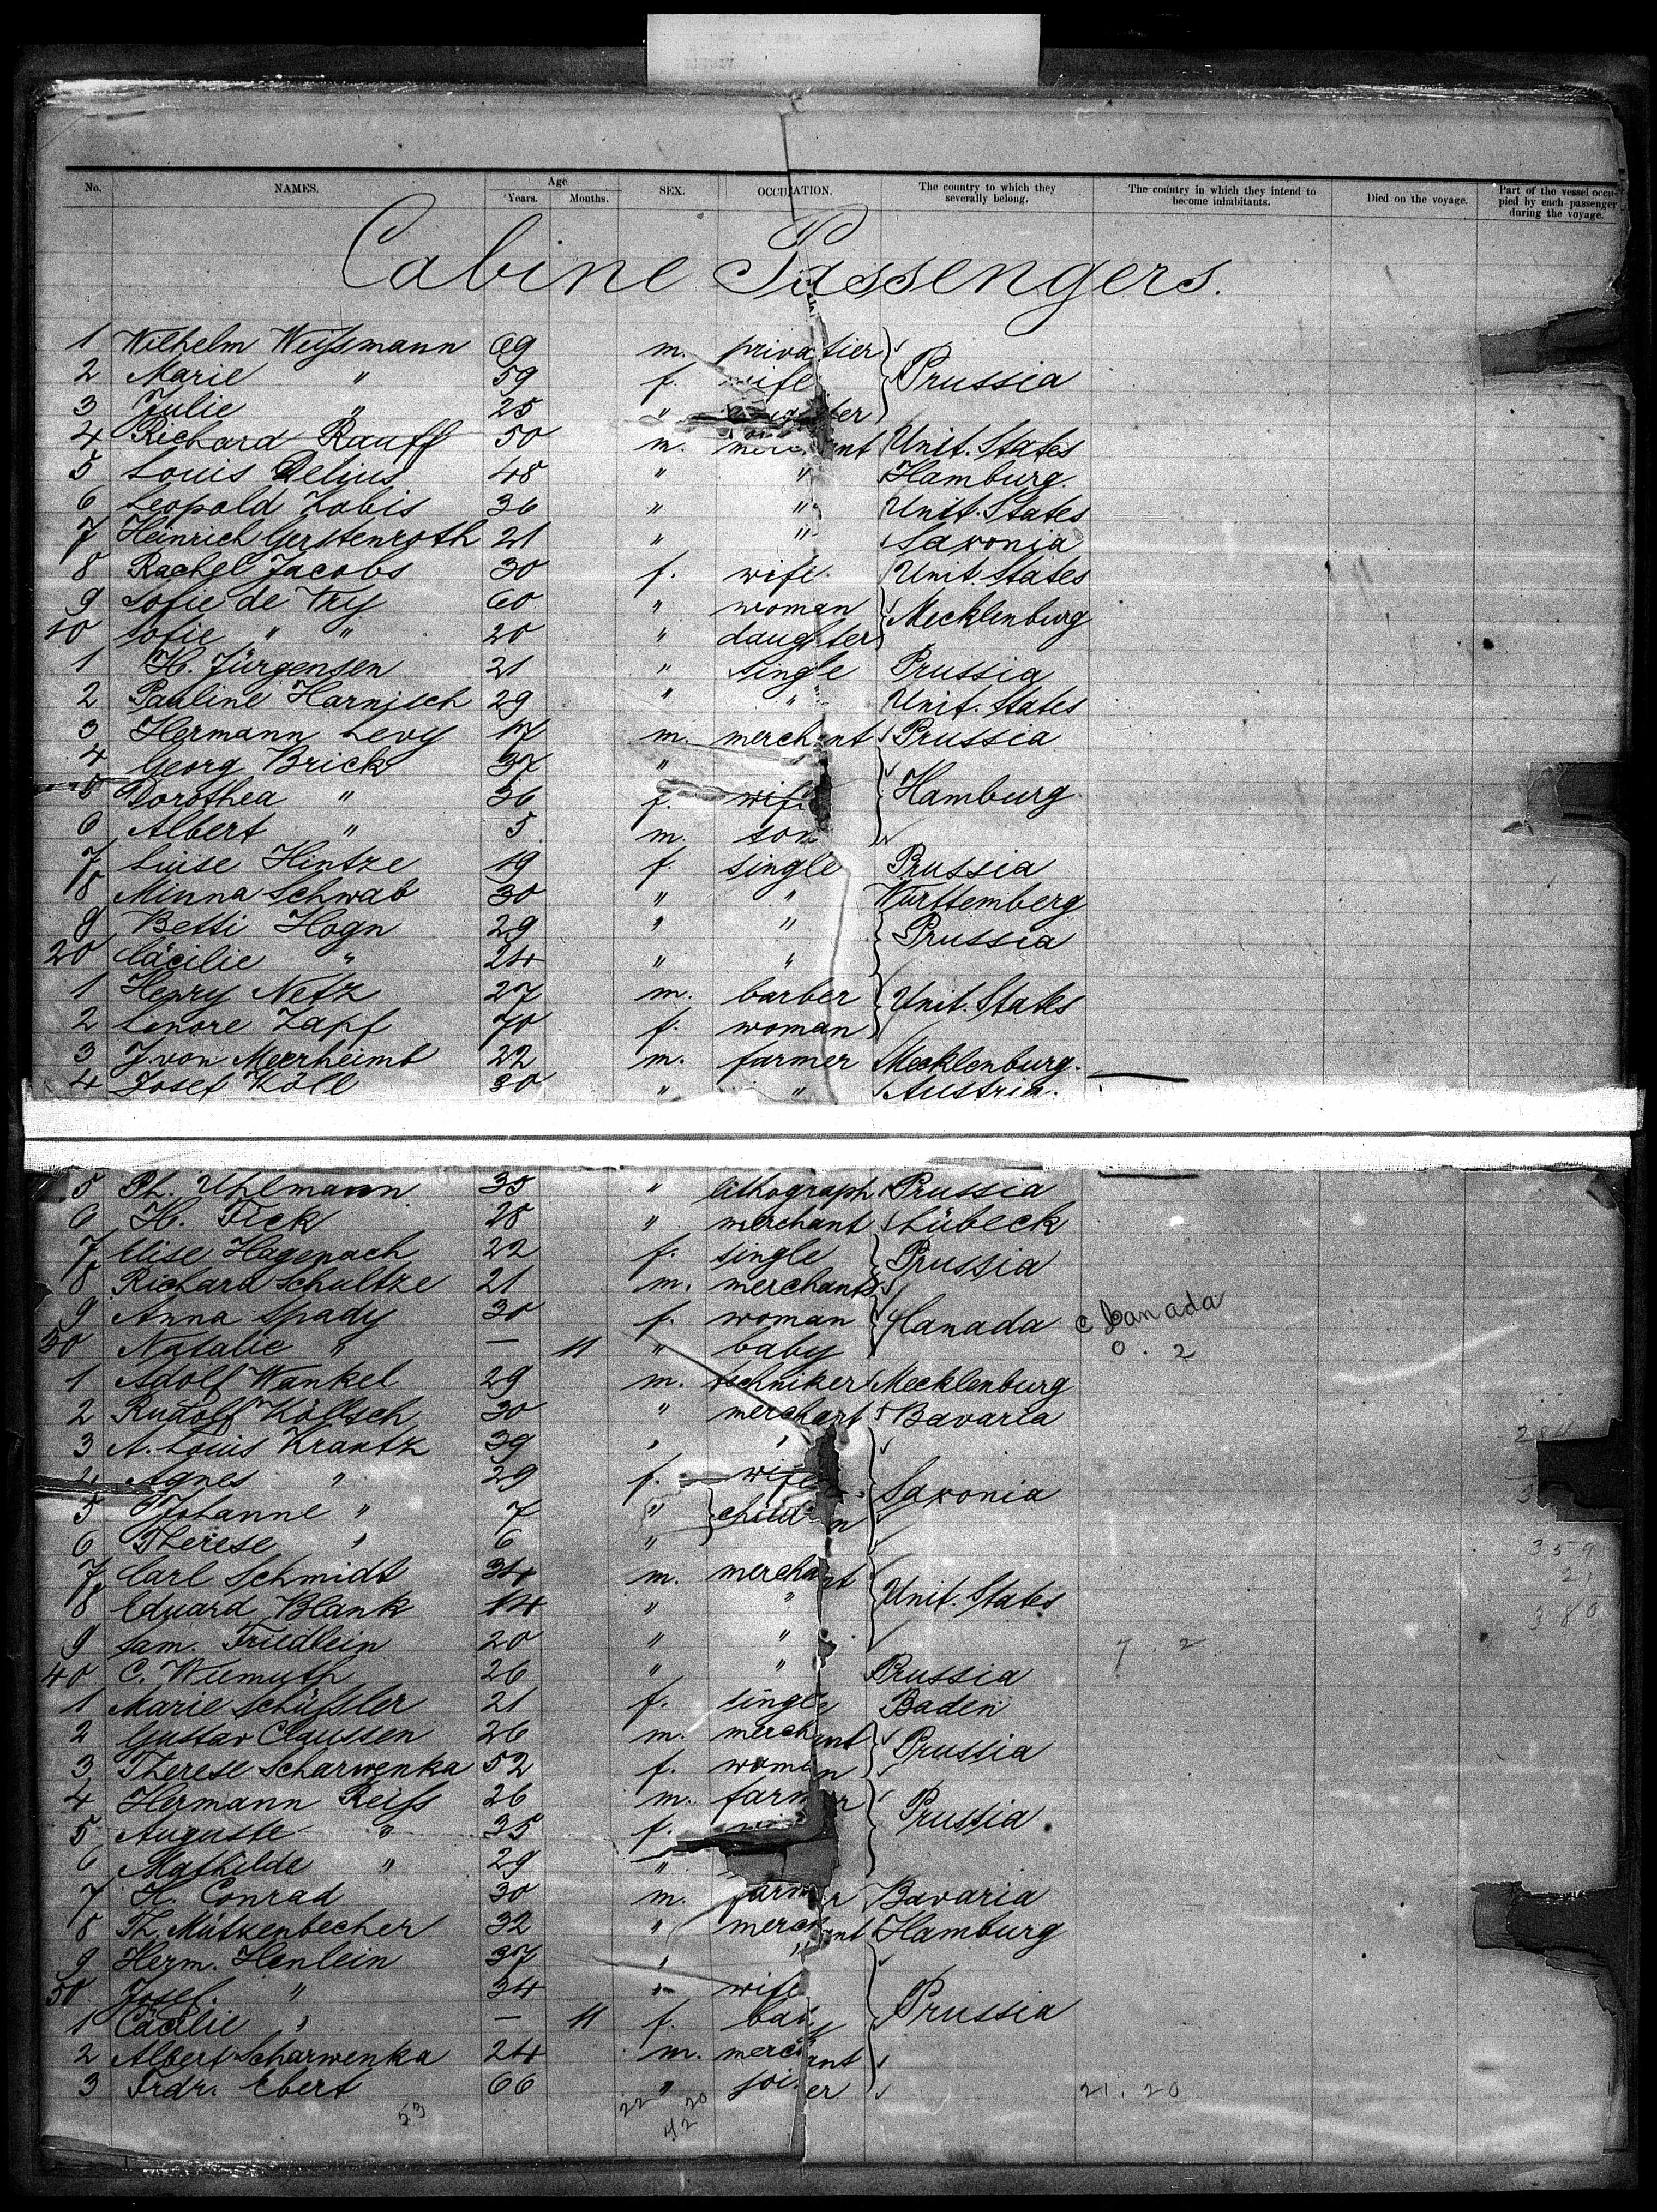 No. NAMES. Age Years. Months. SEX. OCCUPATION. The country to which they severally belong. The country in which they intend to become inhabitants. Died on the voyage. Part of the vessel occupied by each passenger during the voyage.
Cabine Passengers.
1 Wilhelm Weißmann 69 m. privatier
2 Marie " 59 f. wife Prussia
3 Julie " 25 " daughter
4 Richard Rauff 50 m. merchant Unit. States
5 Louis Delius 48 " " Hamburg.
6 Leopold Zobis 36 " " Unit. States
7 Heinrich Gerstenroth 21 " " Saxonia
8 Rachel Jacobs 30 f. wife. Unit. States
9 Sofie de Vry 60 " woman Mecklenburg
10 Sofie " " 20 " daughter
1 H. Jürgensen 21 " single Prussia
2 Pauline Harnisch 29 " " Unit. States
3 Hermann Levy 17 m. merchant Prussia
4 Georg Brick 37 "
5 Dorothea " 36 f. wife Hamburg.
6 Albert " 5 m. son
7 Luise Hintze 19 f. single Prussia
8 Minna Schwab 30 " " Württemberg
9 Betti Hogn 29 " " Prussia
20 Cäcilie " 24 " "
1 Henry Netz 27 m. barber Unit. States
2 Lenore Zapf 70 f. woman
3 J. von Meerheimb 22 m. farmer Mecklenburg.
4 Josef Köll 30 " " Austria.
5 Ph. Uhlmann 35 " lithograph Prussia
6 H. Fick 28 " merchant Lübeck
7 Elise Hagenach 22 f. single Prussia
8 Richard Schultze 21 m. merchant
9 Anna Spady 30 f. woman Canada Canada
30 Natalie " — 11 " baby 0. 2
1 Adolf Wankel 29 m. techniker Mecklenburg
2 Rudolf Köllsch 30 " merchant Bavaria
3 A. Louis Krantz 39 " "
4 Agnes " 29 f. wife Saxonia
5 Johanne " 7 " children
6 Therese " 6 " 359
7 Carl Schmidt 34 m. merchant 21
8 Eduard Blank 14 " " Unit. States 380
9 Sam. Friedlein 20 " " 7. 2
40 C. Wiemuth 26 " " Prussia
1 Marie Schüßler 21 f. single Baden
2 Gustav Claussen 26 m. merchant Prussia
3 Therese Scharwenka 52 f. woman
4 Hermann Reiß 26 m. farmer Prussia
5 Auguste " 35 f.
6 Mathilde " 29 "
7 H. Conrad 30 m. farmer Bavaria
8 Th. Mützenbecher 32 " merchant Hamburg
9 Herm. Henlein 37 " "
50 Josef. " 34 " wife
1 Cäcilie " — 11 f. baby Prussia
2 Albert Scharwenka 24 m. merchant
3 Frdr. Ebert 66 " 21. 20
53 22 20
42